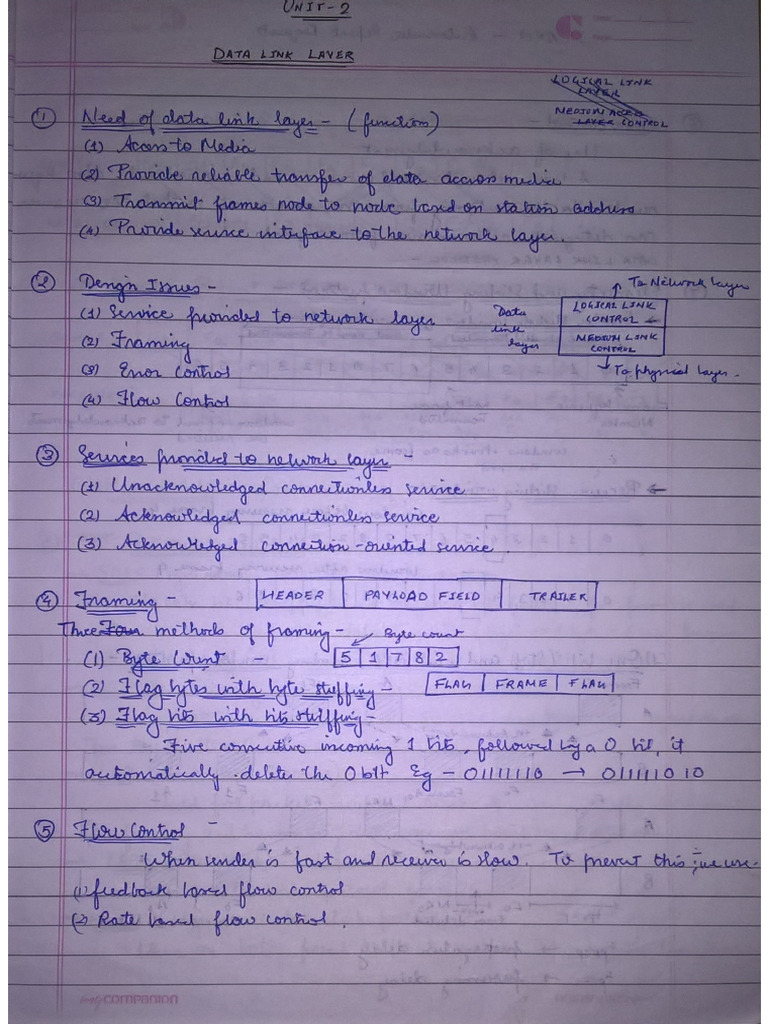 UNIT-2
DATA LINK LAYER
LOGICAL LINK
LAYER
MEDIUM ACCE
LAYER CONTROL
① Need of data link layer - (function)
(1) Access to Media
(2) Provide reliable transfer of data accross media
(3) Transmit frames node to node based on station address
(4) Provide service interface to the network layer.
② Design Issues -
(1) Service provided to network layer
(2) Framing
(3) Error control
(4) Flow Control
→ To Network layer
Data
link
layer
LOGICAL LINK
CONTROL ←
MEDIUM LINK
CONTROL
→ To physical layer.
③ Services provided to network layer -
(1) Unacknowledged connectionless service ←
(2) Acknowledged connectionless service
(3) Acknowledged connection-oriented service.
④ Framing - HEADER PAYLOAD FIELD TRAILER
Three Four methods of framing - Byte count
(1) Byte Count - 5 1 7 8 2
(2) Flag bytes with byte stuffing - FLAG FRAME FLAG
(3) Flag bits with bits stuffing -
Five consective incoming 1 bits, followed by a 0 bit, it
automatically deletes the 0 bit Eg - 01111110 → 011111010
⑤ Flow Control -
When sender is fast and receiver is slow. To prevent this, we use -
(1) feedback based flow control
(2) Rate based flow control.
my companion